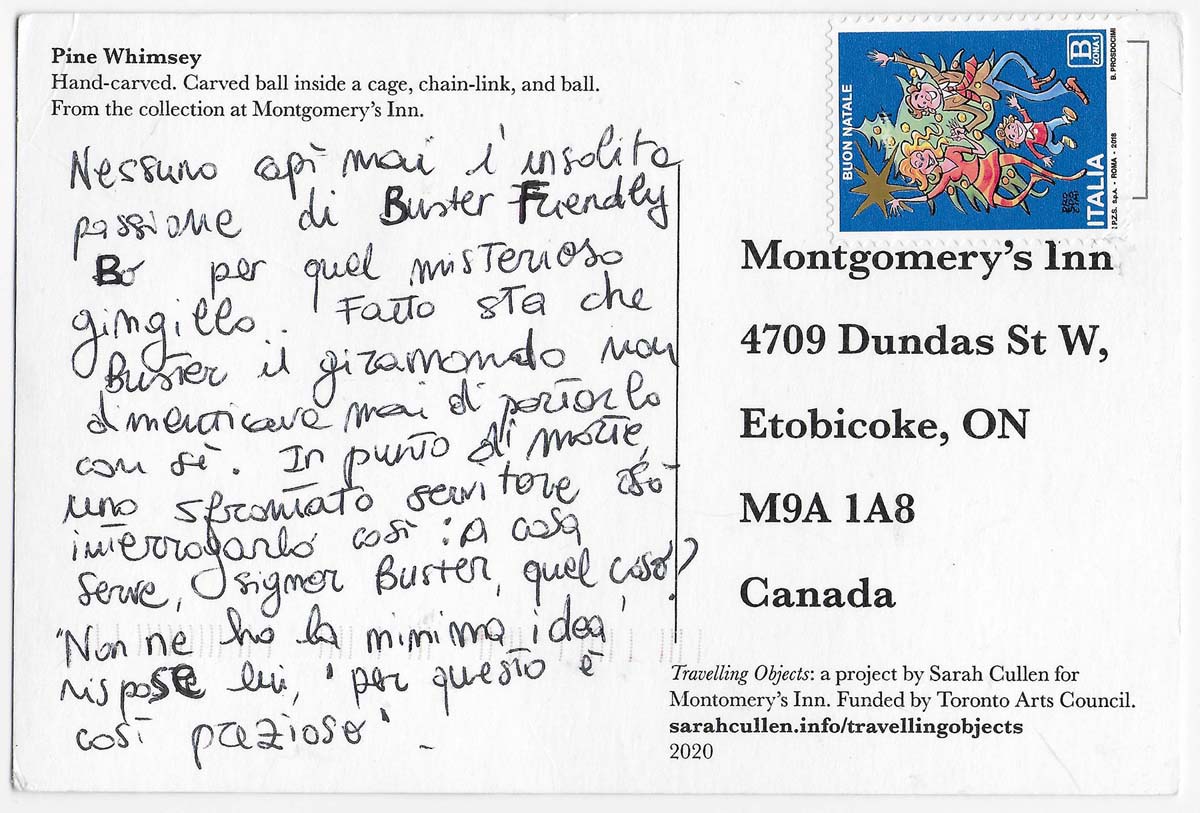 Pine Whimsey
Hand-carved. Carved ball inside a cage, chain-link, and ball.
From the collection at Montgomery's Inn.
Nessuno capì mai l'insolita
passione di Buster Friendly
Bo per quel misterioso
gingillo. Fatto sta che
Buster il giramondo non
dimenticava mai di portarlo
con sè. In punto di morte,
uno sfrontato servitore osò
interrogarlo così: a cosa
serve, signor Buster, quel coso?
'Non ne ho la minima idea',
rispose lui, 'per questo è
così prezioso'.
BUON NATALE
B
ZONA1
ITALIA
I.P.Z.S. S.p.A. - ROMA - 2018
B. PROSDOCIMI
Montgomery's Inn
4709 Dundas St W,
Etobicoke, ON
M9A 1A8
Canada
Travelling Objects: a project by Sarah Cullen for
Montomery's Inn. Funded by Toronto Arts Council.
sarahcullen.info/travellingobjects
2020